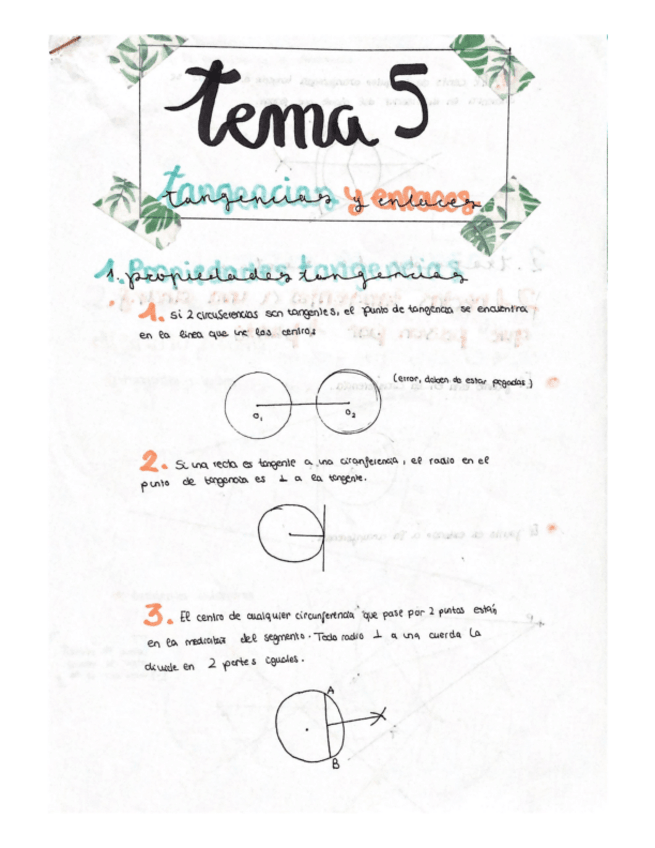 tema 5
tangencias y enlaces
1. propiedades tangencias
1. Si 2 circunferencias son tangentes, el punto de tangencia se encuentra
en la linea que une los centros
(error, deben de estar pegadas)
O1 O2
2. Si una recta es tangente a una circunferencia, el radio en el
punto de tangencia es ⊥ a la tangente.
3. El centro de cualquier circunferencia que pase por 2 puntos están
en la mediatriz del segmento. Todo radio ⊥ a una cuerda la
divide en 2 partes iguales.
A
B